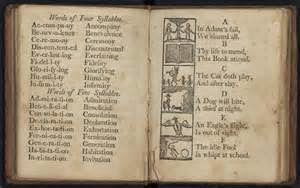 Words of Four Syllables.
Ac-com-pa-ny Accompany
Be-nev-o-lence Benevolence
Ce-re-mo-ny Ceremony
Dis-con-tent-ed Discontented
Ev-er-last-ing Everlasting
Fi-del-i-ty Fidelity
Glo-ri-fy-ing Glorifying
Hu-mil-i-ty Humility
In-firm-i-ty Infirmity
Words of Five Syllables.
Ad-mi-ra-ti-on Admiration
Be-ne-fi-ci-al Beneficial
Con-so-la-ti-on Consolation
De-cla-ra-ti-on Declaration
Ex-hor-ta-ti-on Exhortation
For-ni-ca-ti-on Fornication
Ge-ne-ra-ti-on Generation
Ha-bi-ta-ti-on Habitation
In-vi-ta-ti-on Invitation
A
In Adam's fall,
We sinned all.
B
Thy life to mend,
This Book attend.
C
The Cat doth play,
And after slay.
D
A Dog will bite,
A thief at night.
E
An Eagle's flight
Is out of sight.
F
The idle Fool
Is whipt at school.